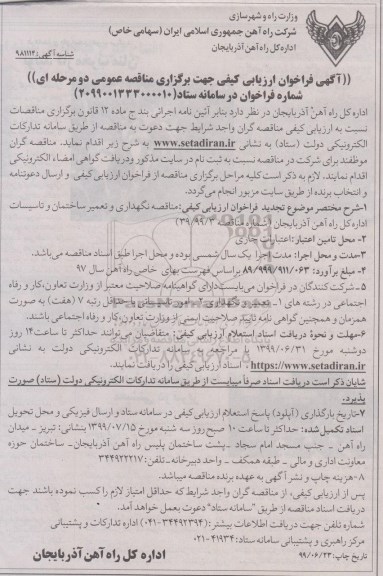 وزارت راه و شهرسازی
شرکت راه آهن جمهوری اسلامی ایران (سهامی خاص)
اداره کل راه آهن آذربایجان
شناسه آگهی: ۹۸۱۱۱۴
((آگهی فراخوان ارزیابی کیفی جهت برگزاری مناقصه عمومی دو مرحله ای))
شماره فراخوان در سامانه ستاد(۲۰۹۹۰۰۱۳۳۳۰۰۰۰۱۰)
اداره کل راه آهن آذربایجان در نظر دارد بنابر آئین نامه اجرائی بند ج ماده ۱۲ قانون برگزاری مناقصات
نسبت به ارزیابی کیفی مناقصه گران واجد شرایط جهت دعوت به مناقصه از طریق سامانه تدارکات
الکترونیکی دولت (ستاد) به نشانی www.setadiran.ir به شرح زیر اقدام نماید. مناقصه گران
موظفند برای شرکت در مناقصه نسبت به ثبت نام در سایت مذکور ودریافت گواهی امضاء الکترونیکی
اقدام نمایند. لازم به ذکر است کلیه مراحل برگزاری مناقصه از فراخوان ارزیابی کیفی و ارسال دعوتنامه
و انتخاب برنده از طریق سایت مزبور انجام می‌گردد.
۱-شرح مختصر موضوع تجدید فراخوان ارزیابی کیفی: مناقصه نگهداری و تعمیر ساختمان و تاسیسات
اداره کل راه آهن آذربایجان (شماره مناقصه ۳۹/۹۹/۳)
۲- محل تامین اعتبار: اعتبارات جاری
۳-مدت و محل اجرا: مدت اجرا یک سال شمسی بوده و محل اجرا طبق اسناد مناقصه می‌باشد.
۴- مبلغ برآورد: ۸۹/۹۹۹/۹۱۱/۰۶۳ براساس فهرست بهای خاص راه آهن سال ۹۷
۵- شرکت کنندگان در فراخوان می‌بایست دارای گواهینامه صلاحیت معتبر از وزارت تعاون، کار و رفاه
اجتماعی در رشته های ۱- تعمیر و نگهداری ۲- امور تاسیساتی با حداقل رتبه ۷ (هفت) به صورت
همزمان و همچنین گواهی نامه تایید صلاحیت ایمنی از وزارت تعاون، کار و رفاه اجتماعی باشند.
۶-مهلت و نحوه دریافت اسناد استعلام ارزیابی کیفی: متقاضیان می‌توانند حداکثر تا ساعت ۱۴ روز
دوشنبه مورخ ۱۳۹۹/۰۶/۳۱ با مراجعه به سامانه تدارکات الکترونیکی دولت به نشانی
https://www.setadiran.ir ، اسناد ارزیابی کیفی را دریافت نمایند.
شایان ذکر است دریافت اسناد صرفاً میبایست از طریق سامانه تدارکات الکترونیکی دولت (ستاد) صورت
پذیرد.
۷-تاریخ بارگذاری (آپلود) پاسخ استعلام ارزیابی کیفی در سامانه ستاد و ارسال فیزیکی و محل تحویل
اسناد تکمیل شده: حداکثر تا ساعت ۱۰ صبح روز سه شنبه مورخ ۱۳۹۹/۰۷/۱۵ بنشانی: تبریز - میدان
راه آهن - جنب مسجد امام سجاد -پشت ساختمان پلیس راه آهن آذربایجان- ساختمان حوزه
معاونت اداری و مالی - طبقه همکف - واحد دبیرخانه -تلفن: ۳۴۴۹۲۲۲۱۷
۸-هزینه چاپ و نشر آگهی به عهده برنده مناقصه میباشد.
پس از ارزیابی کیفی، از مناقصه گران واجد شرایط که حداقل امتیاز لازم را کسب نموده باشند جهت
دریافت اسناد مناقصه از طریق "سامانه ستاد" دعوت بعمل خواهد آمد.
شماره تلفن جهت دریافت اطلاعات بیشتر: (۳۴۴۹۲۳۹۴-۰۴۱) اداره تدارکات و پشتیبانی
مرکز راهبری و پشتیبانی سامانه ستاد: ۴۱۹۳۴-۰۲۱
تاریخ چاپ: ۹۹/۰۶/۲۳
اداره کل راه آهن آذربایجان